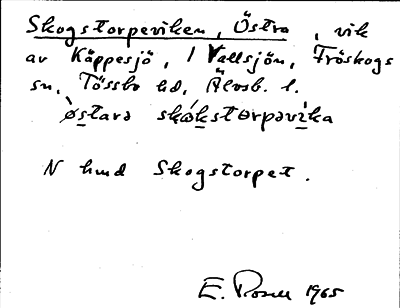 Skogstorpeviken, Östra, vik
av Käppesjö, / Vallsjön, Fröskogs
sn, Tössbo hd, Älvsb. l.
østara skòkstorpəvika
N hund Skogstorpet.
E. Rosell 1965